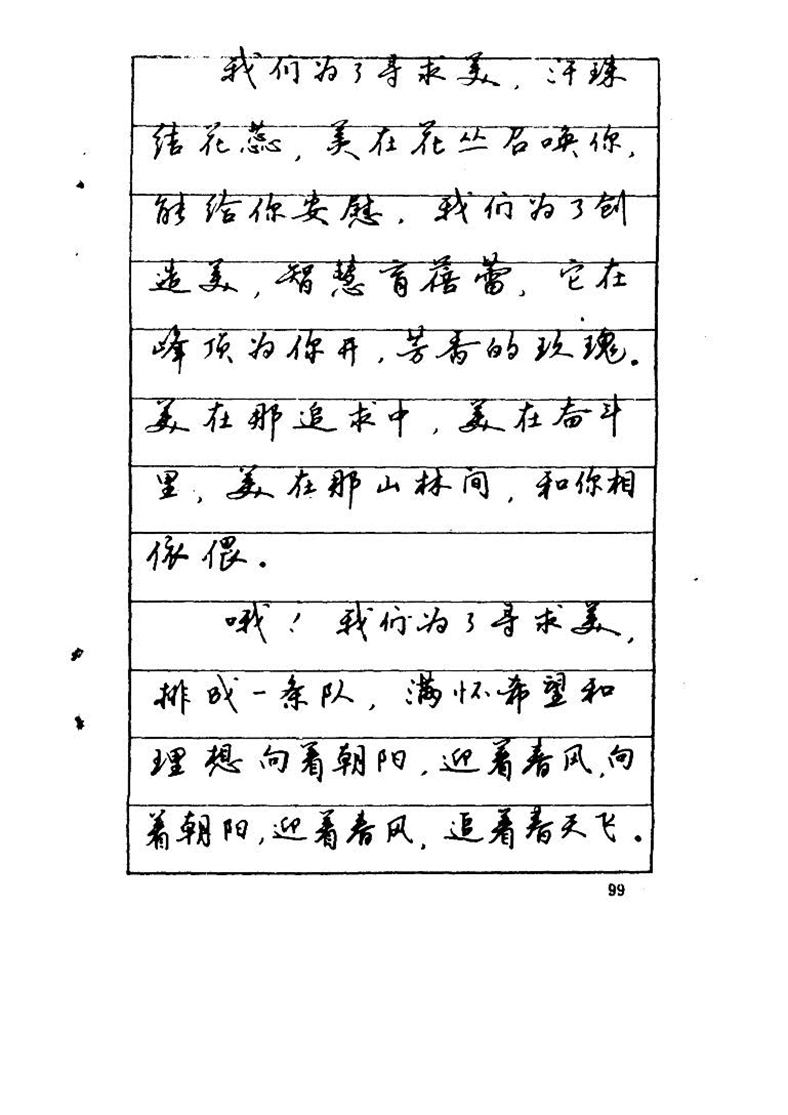 我们为了寻求美，汗珠
结花蕊，美在花丛召唤你，
能给你安慰，我们为了创
造美，智慧育蓓蕾，它在
峰顶为你开，芳香的玫瑰。
美在那追求中，美在奋斗
里，美在那山林间，和你相
依偎。
哦！我们为了寻求美，
排成一条队，满怀希望和
理想向着朝阳，迎着春风，向
着朝阳，迎着春风，追着春天飞。
99